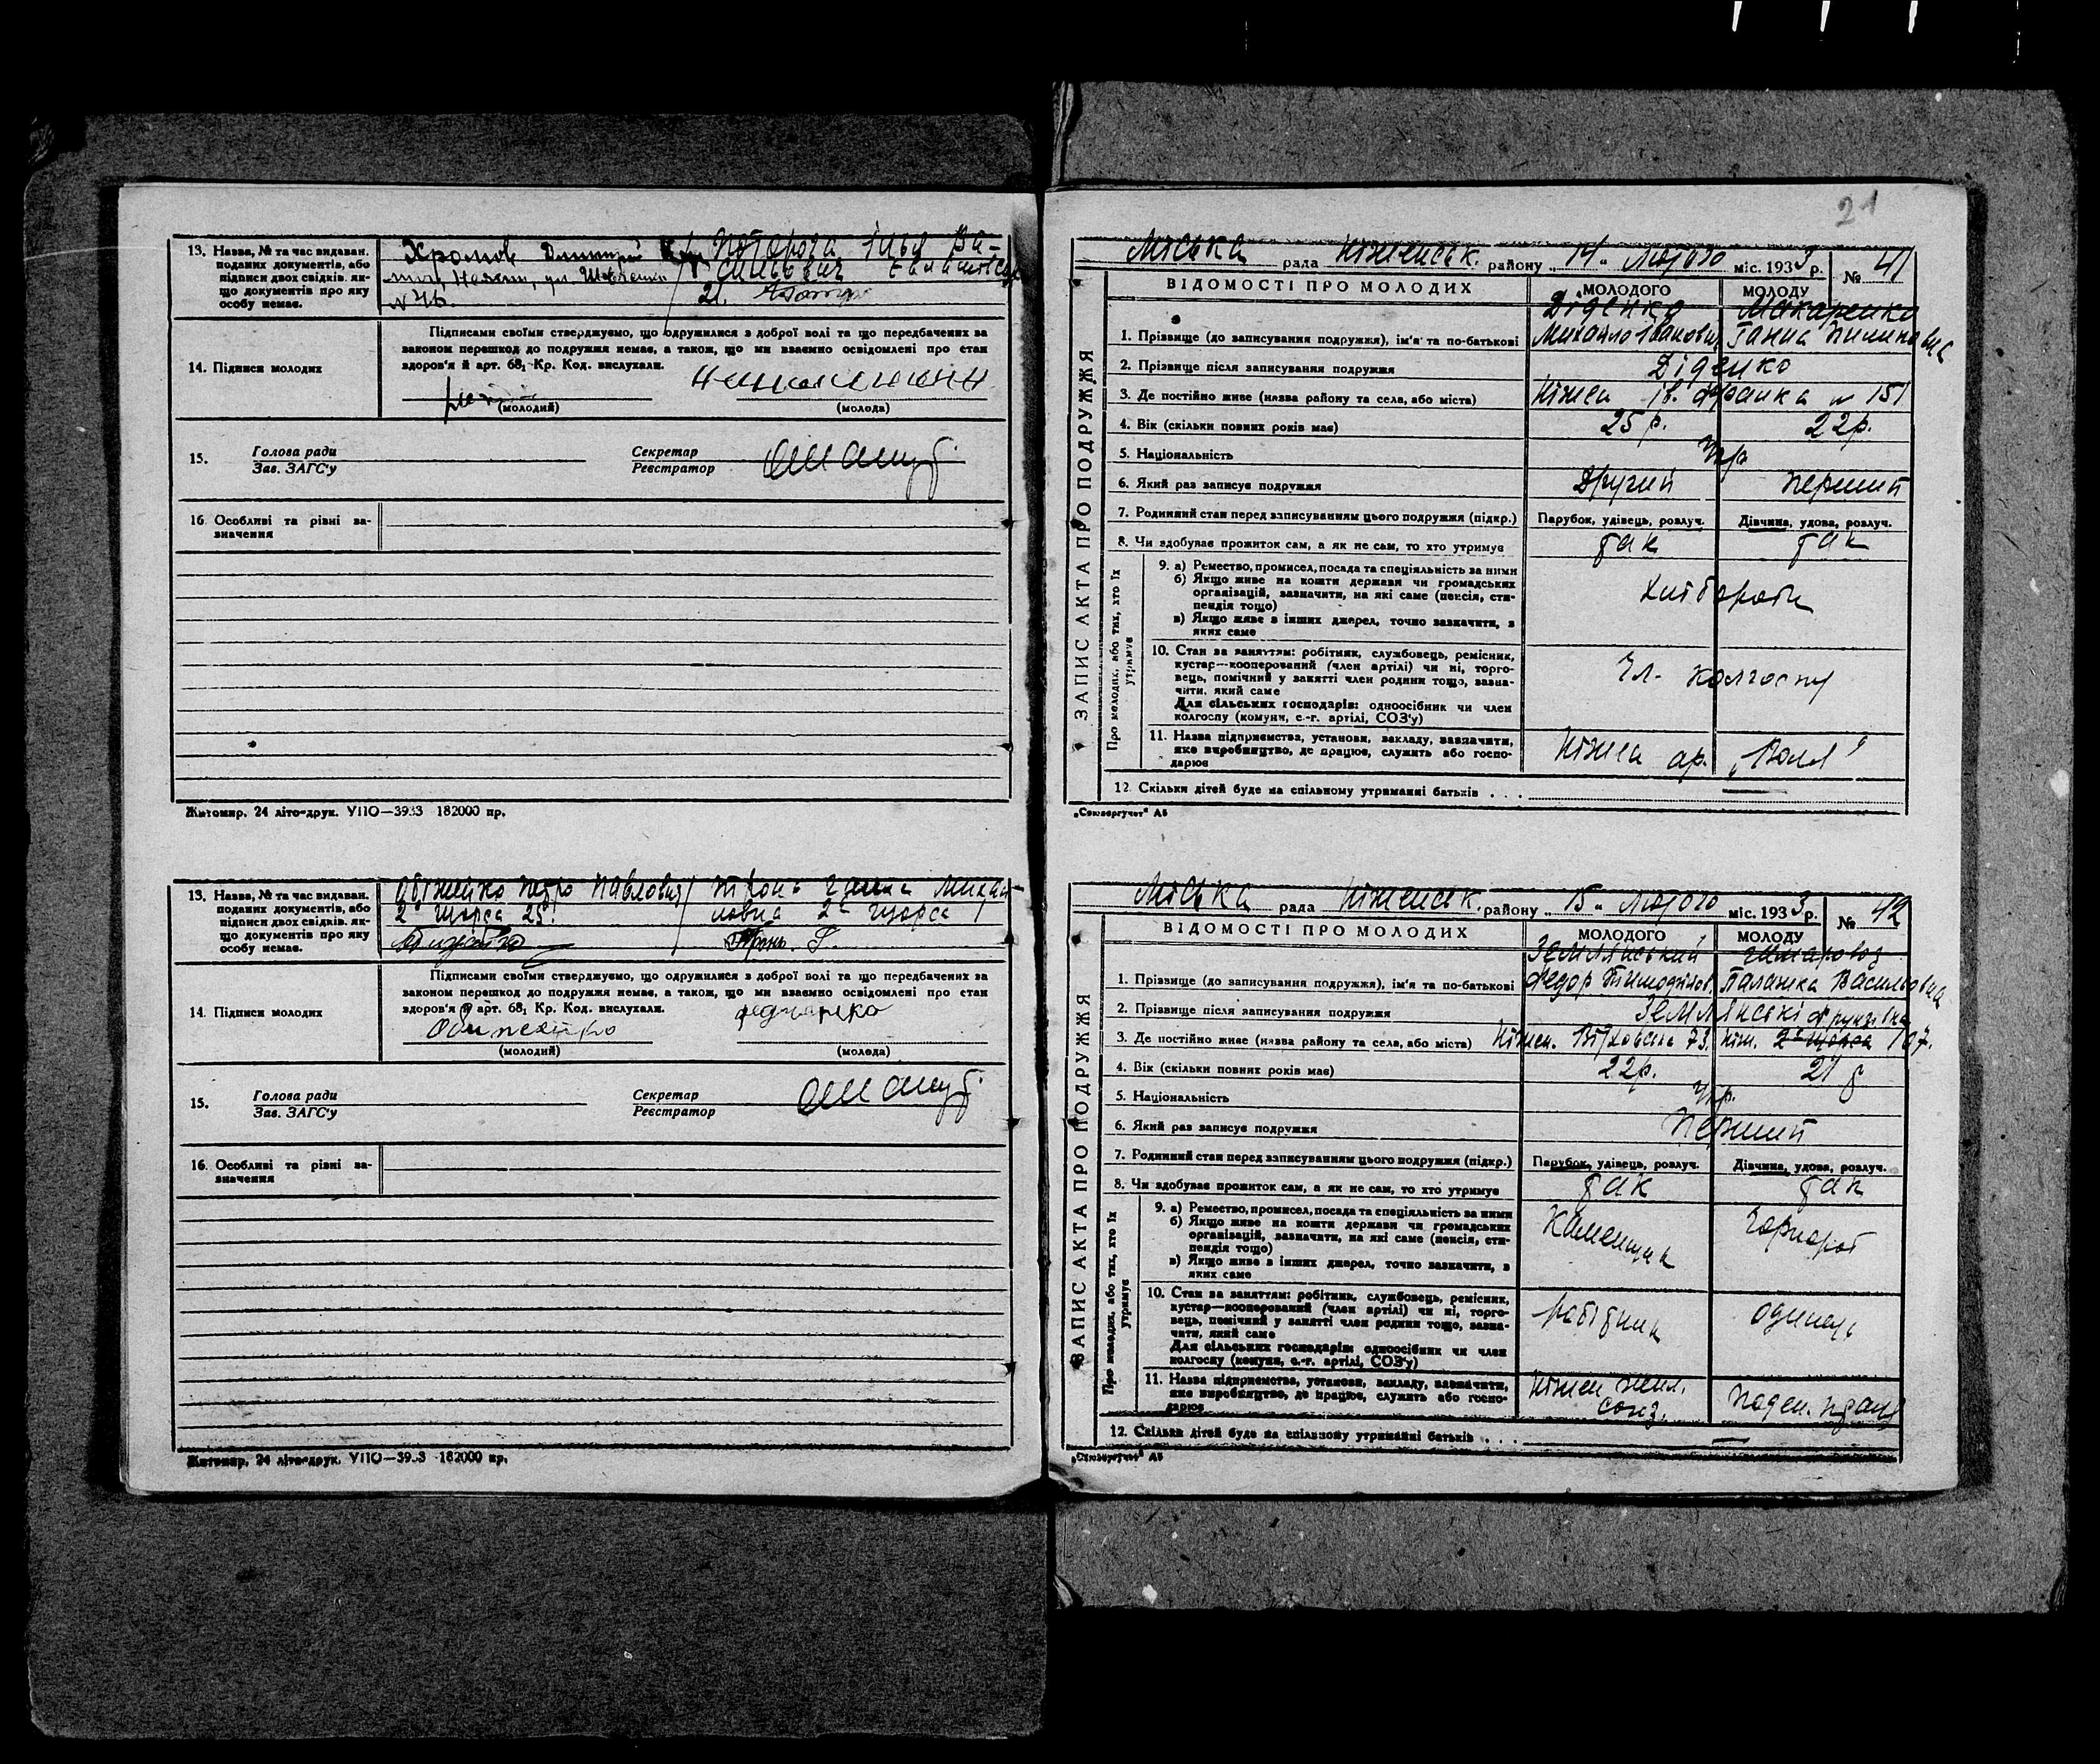 13. Назва, № та час видаван.
поданих документів, або
підписи двох свідків, як-
що документів про яку
особу немає.
Хромов Дмитрий
Ілья Ва-
ул. Шевченки
21.
14. Підписи молодих
Підписами своїми стверджуємо, що одружилися з доброї волі та що передбачених за
законом перешкод до подружжя немає, а також, що ми взаємно освідомлені про стан
здоров'я й арт. 68₁ Кр. Код. вислухали.
(молодий)
(молода)
15.
Голова ради
Зав. ЗАГС'у
Секретар
Реєстратор
16. Особливі та рівні за-
значення
Житомир, 24 літо-друк. УПО—3933 182000 пр.
13. Назва, № та час видаван.
поданих документів, або
підписи двох свідків, як-
що документів про яку
особу немає.
Петро Павлович
Тронь Ганна Михай
2ª Щорса 25
ловна 2ª Щорса 1
14. Підписи молодих
Підписами своїми стверджуємо, що одружилися з доброї волі та що передбачених за
законом перешкод до подружжя немає, а також, що ми взаємно освідомлені про стан
здоров'я й арт. 68₁ Кр. Код. вислухали.
(молодий)
(молода)
15.
Голова ради
Зав. ЗАГС'у
Секретар
Реєстратор
16. Особливі та рівні за-
значення
Житомир, 24 літо-друк. УПО—3933 182000 пр.
21
Міська рада Ніженськ. району „14“ Лютого міс. 1933 р. № 41
ЗАПИС АКТА ПРО ПОДРУЖЖЯ
ВІДОМОСТІ ПРО МОЛОДИХ
МОЛОДОГО
МОЛОДУ
Діденко
Макаренко
1. Прізвище (до записування подружжя), ім'я та по-батькові
Михайло Іванович
Ганна Пилиповна
2. Прізвище після записування подружжя
Діденко
3. Де постійно живе (назва району та села, або міста)
Ніжен Ів. Франка № 151
4. Вік (скільки повних років має)
25 р.
22р.
5. Національність
Укр
6. Який раз записує подружжя
Другий
Перший
7. Родинний стан перед записуванням цього подружжя (підкр.)
Парубок, удівець, розлуч.
Дівчина, удова, розлуч.
8. Чи здобуває прожиток сам, а як не сам, то хто утримує
так
так
Про молодих, або тих, хто їх утримує
9. а) Ремество, промисел, посада та спеціяльність за ними
б) Якщо живе на кошти держави чи громадських
організацій, зазначити, на які саме (пенсія, сти-
пендія тощо)
в) Якщо живе з інших джерел, точно зазначити, з
яких саме
Хлібороби
10. Стан за заняттям: робітник, службовець, ремісник,
кустар—кооперований (член артілі) чи ні, торго-
вець, помічний у занятті член родини тощо, зазна-
чити, який саме
Для сільських господарів: одноосібник чи член
колгоспу (комуни, с.-г. артілі, СОЗ'у)
Чл. колгоспу
11. Назва підприємства, установи, закладу, зазначити,
яке виробництво, де працює, служить або госпо-
дарює
Ніжен ар. „Воля“
12. Скільки дітей буде на спільному утриманні батьків . . .
„Союзоргучет“ А5
Міська рада Ніженськ. району „15“ Лютого міс. 1933 р. № 42
ЗАПИС АКТА ПРО ПОДРУЖЖЯ
ВІДОМОСТІ ПРО МОЛОДИХ
МОЛОДОГО
МОЛОДУ
Землянський
Шмаровоз
1. Прізвище (до записування подружжя), ім'я та по-батькові
Федор Тимофійов.
Палажка Васильовна
2. Прізвище після записування подружжя
Землянські
3. Де постійно живе (назва району та села, або міста)
Ніжен. 73.
Ніж. 2ª Щорса 107.
4. Вік (скільки повних років має)
22р.
21 р
5. Національність
Укр.
6. Який раз записує подружжя
Перший
7. Родинний стан перед записуванням цього подружжя (підкр.)
Парубок, удівець, розлуч.
Дівчина, удова, розлуч.
8. Чи здобуває прожиток сам, а як не сам, то хто утримує
так
так
Про молодих, або тих, хто їх утримує
9. а) Ремество, промисел, посада та спеціяльність за ними
б) Якщо живе на кошти держави чи громадських
організацій, зазначити, на які саме (пенсія, сти-
пендія тощо)
в) Якщо живе з інших джерел, точно зазначити, з
яких саме
Каменщик
Чорнороб
10. Стан за заняттям: робітник, службовець, ремісник,
кустар—кооперований (член артілі) чи ні, торго-
вець, помічний у занятті член родини тощо, зазна-
чити, який саме
Для сільських господарів: одноосібник чи член
колгоспу (комуни, с.-г. артілі, СОЗ'у)
робітник
11. Назва підприємства, установи, закладу, зазначити,
яке виробництво, де працює, служить або госпо-
дарює
Ніжен жил.
союз.
поден. праця
12. Скільки дітей буде на спільному утриманні батьків . . .
„Союзоргучет“ А5